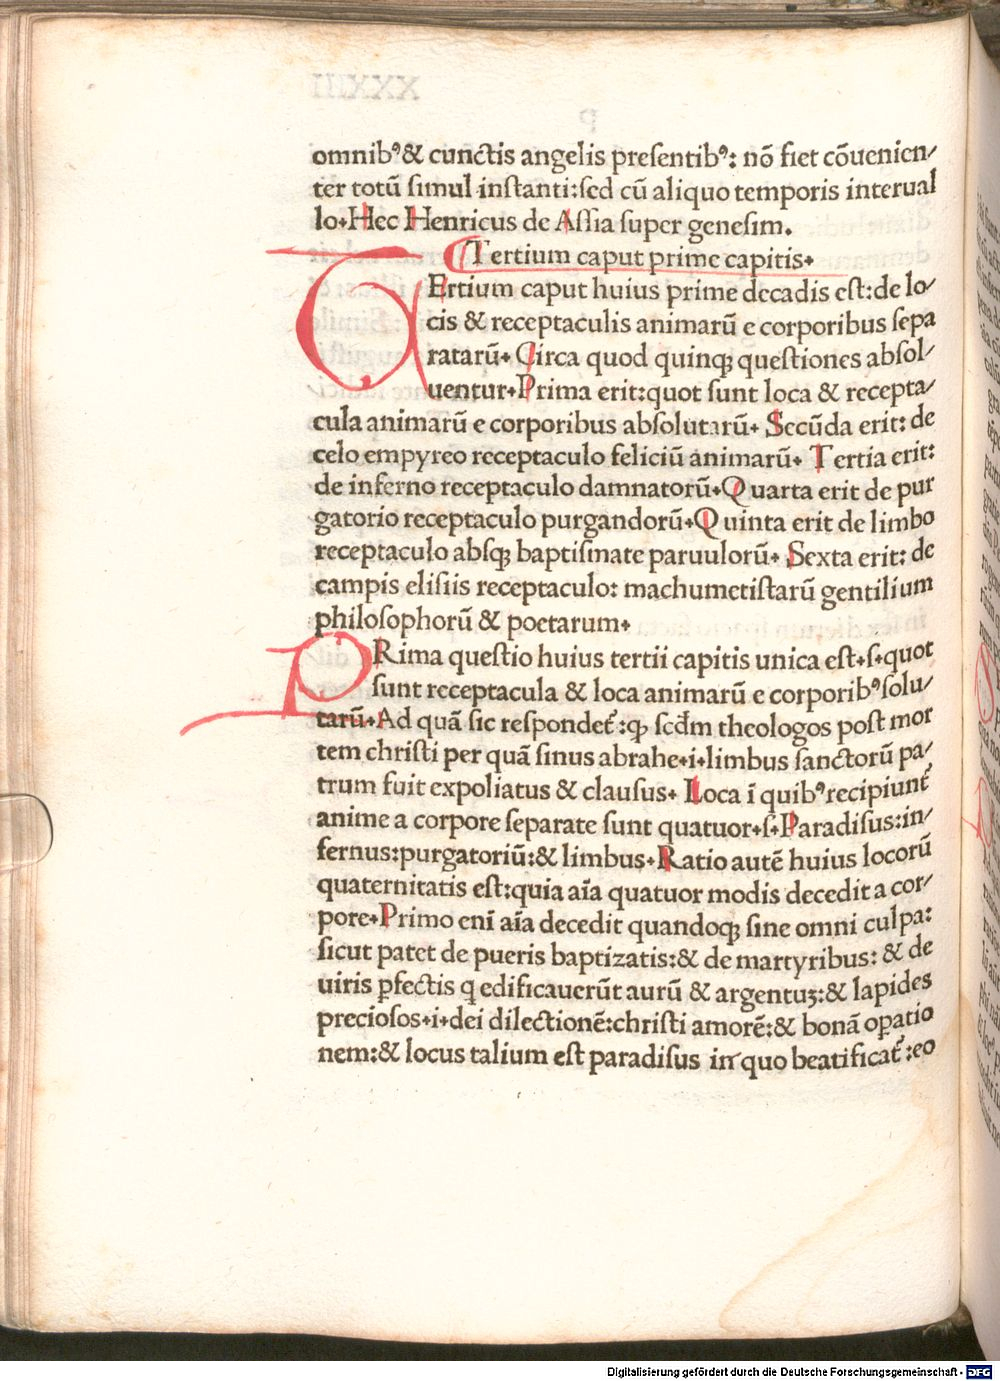 omnibꝰ & cunctis angelis preſentibꝰ: nō fiet cōuenien/
ter totū ſimul inſtanti: ſed cū aliquo temporis interual
lo. Hec Henricus de Aſſia ſuper geneſim.
¶ Tertium caput prime capitis.
TErtium caput huius prime decadis eſt: de lo/
cis & receptaculis animarū e corporibus ſepa
ratarū. Circa quod quinqꝫ queſtiones abſol/
uentur. Prima erit: quot ſunt loca & recepta/
cula animarū e corporibus abſolutarū. Secūda erit: de
celo empyreo receptaculo feliciū animarū. Tertia erit:
de inferno receptaculo damnatorū. Quarta erit de pur
gatorio receptaculo purgandorū. Quinta erit de limbo
receptaculo abſqꝫ baptiſmate paruulorū. Sexta erit: de
campis eliſiis receptaculo: machumetiſtarū gentilium
philoſophorū & poetarum.
PRima queſtio huius tertii capitis unica eſt. ſ. quot
ſunt receptacula & loca animarū e corporibꝰ ſolu/
tarū. Ad quā ſic reſpondet᷑: ꝙ ſcd̄m theologos poſt mor
tem chriſti per quā ſinus abrahe. i. limbus ſanctorū pa/
trum fuit expoliatus & clauſus. Loca ī quibꝰ recipiunt᷑
anime a corpore ſeparate ſunt quatuor. ſ. Paradiſus: in/
fernus: purgatoriū: & limbus. Ratio autē huius locorū
quaternitatis eſt: quia aīa quatuor modis decedit a cor/
pore. Primo enī aīa decedit quandoqꝫ ſine omni culpa:
ſicut patet de pueris baptizatis: & de martyribus: & de
uiris ꝑfectis q edificauerūt aurū & argentuꝫ: & lapides
precioſos. i. dei dilectionē: chriſti amorē: & bonā oꝑatio
nem: & locus talium eſt paradiſus in quo beatificat᷑: eo
Digitalisierung gefördert durch die Deutsche Forschungsgemeinschaft - DFG